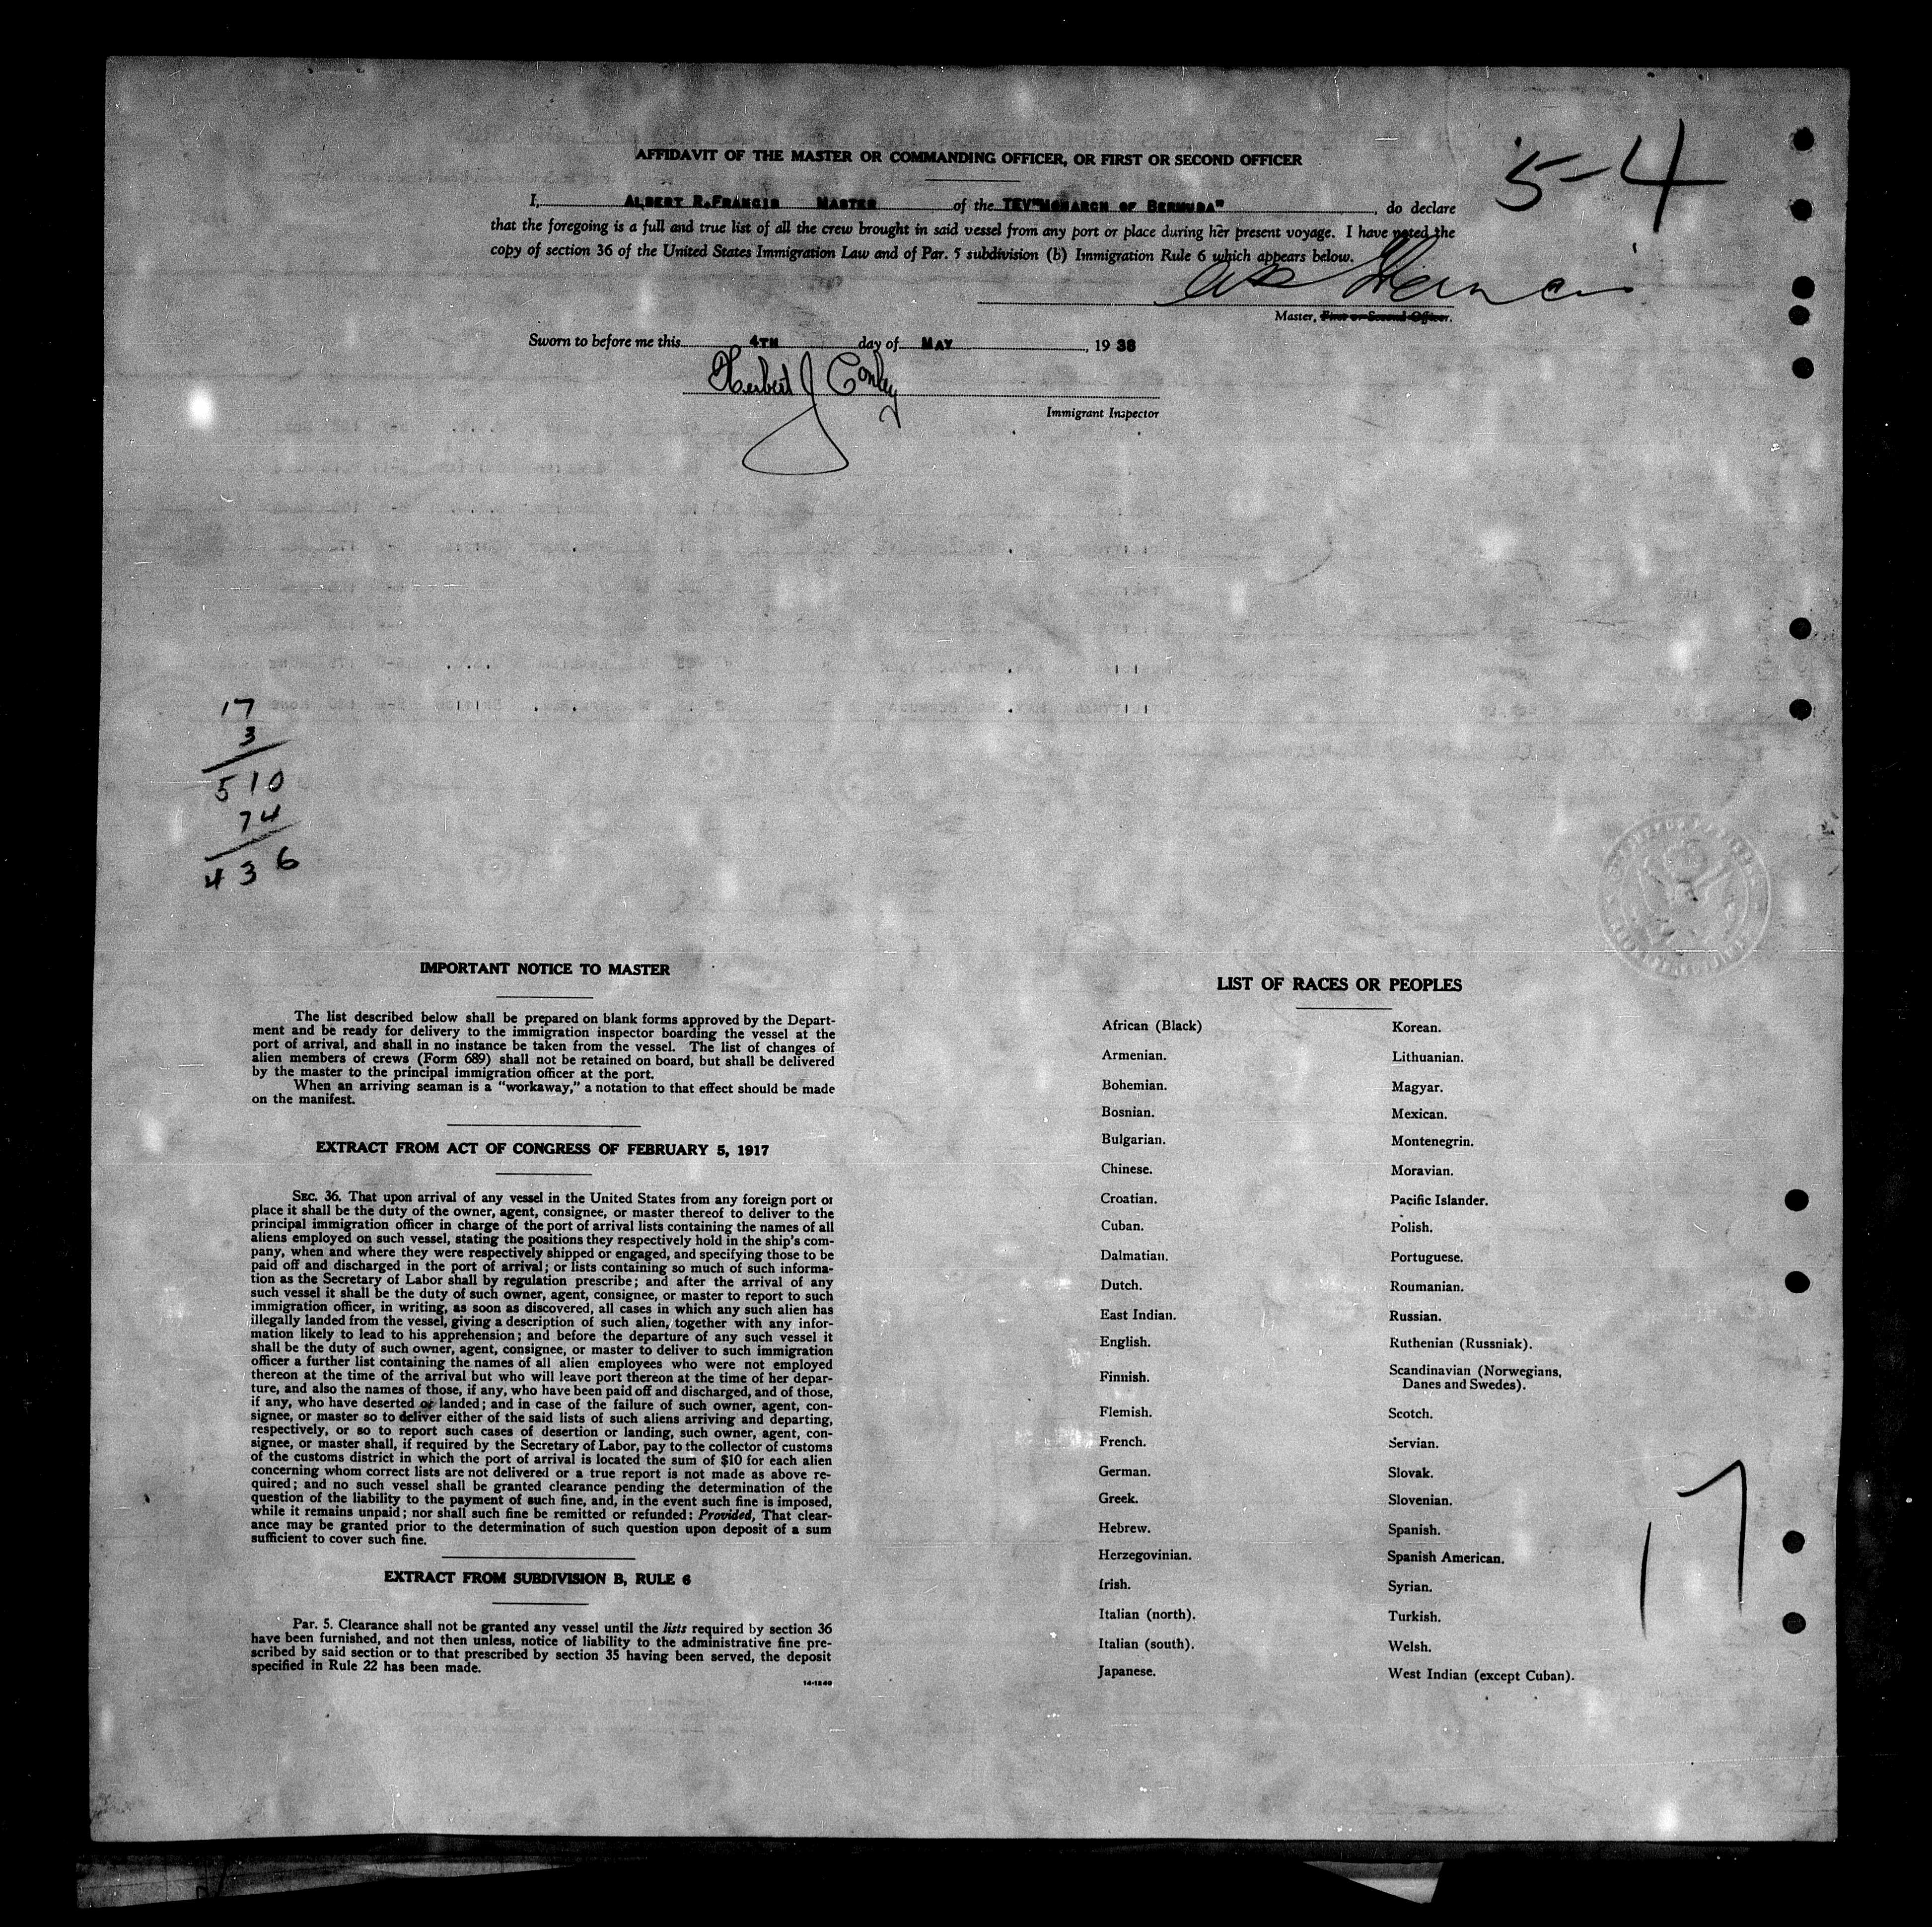 AFFIDAVIT OF THE MASTER OR COMMANDING OFFICER, OR FIRST OR SECOND OFFICER
5-4
I, ALBERT R. FRANCIS MASTER of the TEV "MONARCH OF BERMUDA", do declare
that the foregoing is a full and true list of all the crew brought in said vessel from any port or place during her present voyage. I have noted the
copy of section 36 of the United States Immigration Law and of Par. 5 subdivision (b) Immigration Rule 6 which appears below.
AR Francis
Master, First or Second Officer.
Sworn to before me this 4TH day of MAY, 1938
Herbert J Conley
Immigrant Inspector
17
3
510
74
436
IMPORTANT NOTICE TO MASTER
The list described below shall be prepared on blank forms approved by the Depart-
ment and be ready for delivery to the immigration inspector boarding the vessel at the
port of arrival, and shall in no instance be taken from the vessel. The list of changes of
alien members of crews (Form 689) shall not be retained on board, but shall be delivered
by the master to the principal immigration officer at the port.
When an arriving seaman is a "workaway," a notation to that effect should be made
on the manifest.
EXTRACT FROM ACT OF CONGRESS OF FEBRUARY 5, 1917
SEC. 36. That upon arrival of any vessel in the United States from any foreign port or
place it shall be the duty of the owner, agent, consignee, or master thereof to deliver to the
principal immigration officer in charge of the port of arrival lists containing the names of all
aliens employed on such vessel, stating the positions they respectively hold in the ship's com-
pany, when and where they were respectively shipped or engaged, and specifying those to be
paid off and discharged in the port of arrival; or lists containing so much of such informa-
tion as the Secretary of Labor shall by regulation prescribe; and after the arrival of any
such vessel it shall be the duty of such owner, agent, consignee, or master to report to such
immigration officer, in writing, as soon as discovered, all cases in which any such alien has
illegally landed from the vessel, giving a description of such alien, together with any infor-
mation likely to lead to his apprehension; and before the departure of any such vessel it
shall be the duty of such owner, agent, consignee, or master to deliver to such immigration
officer a further list containing the names of all alien employees who were not employed
thereon at the time of the arrival but who will leave port thereon at the time of her depar-
ture, and also the names of those, if any, who have been paid off and discharged, and of those,
if any, who have deserted or landed; and in case of the failure of such owner, agent, con-
signee, or master so to deliver either of the said lists of such aliens arriving and departing,
respectively, or so to report such cases of desertion or landing, such owner, agent, con-
signee, or master shall, if required by the Secretary of Labor, pay to the collector of customs
of the customs district in which the port of arrival is located the sum of $10 for each alien
concerning whom correct lists are not delivered or a true report is not made as above re-
quired; and no such vessel shall be granted clearance pending the determination of the
question of the liability to the payment of such fine, and, in the event such fine is imposed,
while it remains unpaid; nor shall such fine be remitted or refunded: Provided, That clear-
ance may be granted prior to the determination of such question upon deposit of a sum
sufficient to cover such fine.
EXTRACT FROM SUBDIVISION B, RULE 6
Par. 5. Clearance shall not be granted any vessel until the lists required by section 36
have been furnished, and not then unless, notice of liability to the administrative fine pre-
scribed by said section or to that prescribed by section 35 having been served, the deposit
specified in Rule 22 has been made.
14-1240
LIST OF RACES OR PEOPLES
African (Black)
Armenian.
Bohemian.
Bosnian.
Bulgarian.
Chinese.
Croatian.
Cuban.
Dalmatian.
Dutch.
East Indian.
English.
Finnish.
Flemish.
French.
German.
Greek.
Hebrew.
Herzegovinian.
Irish.
Italian (north).
Italian (south).
Japanese.
Korean.
Lithuanian.
Magyar.
Mexican.
Montenegrin.
Moravian.
Pacific Islander.
Polish.
Portuguese.
Roumanian.
Russian.
Ruthenian (Russniak).
Scandinavian (Norwegians,
Danes and Swedes).
Scotch.
Servian.
Slovak.
Slovenian.
Spanish.
Spanish American.
Syrian.
Turkish.
Welsh.
West Indian (except Cuban).
17